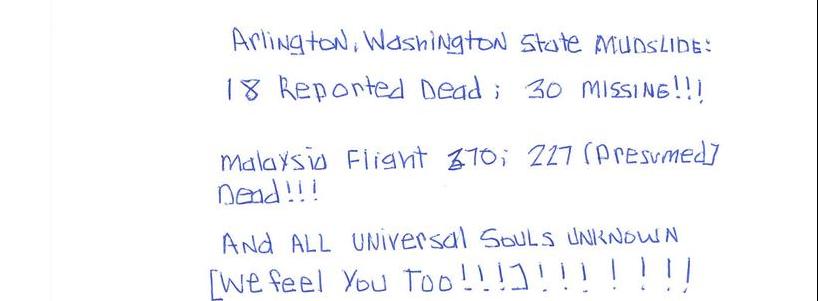 Arlington, Washington State MUDSLIDE:
18 Reported Dead; 30 MISSING!!!
Malaysia Flight 370; 227 (Presumed]
Dead!!!
And ALL UNiversal SOULS UNKNOWN
[We feel You Too!!!]!!! ! ! ! !